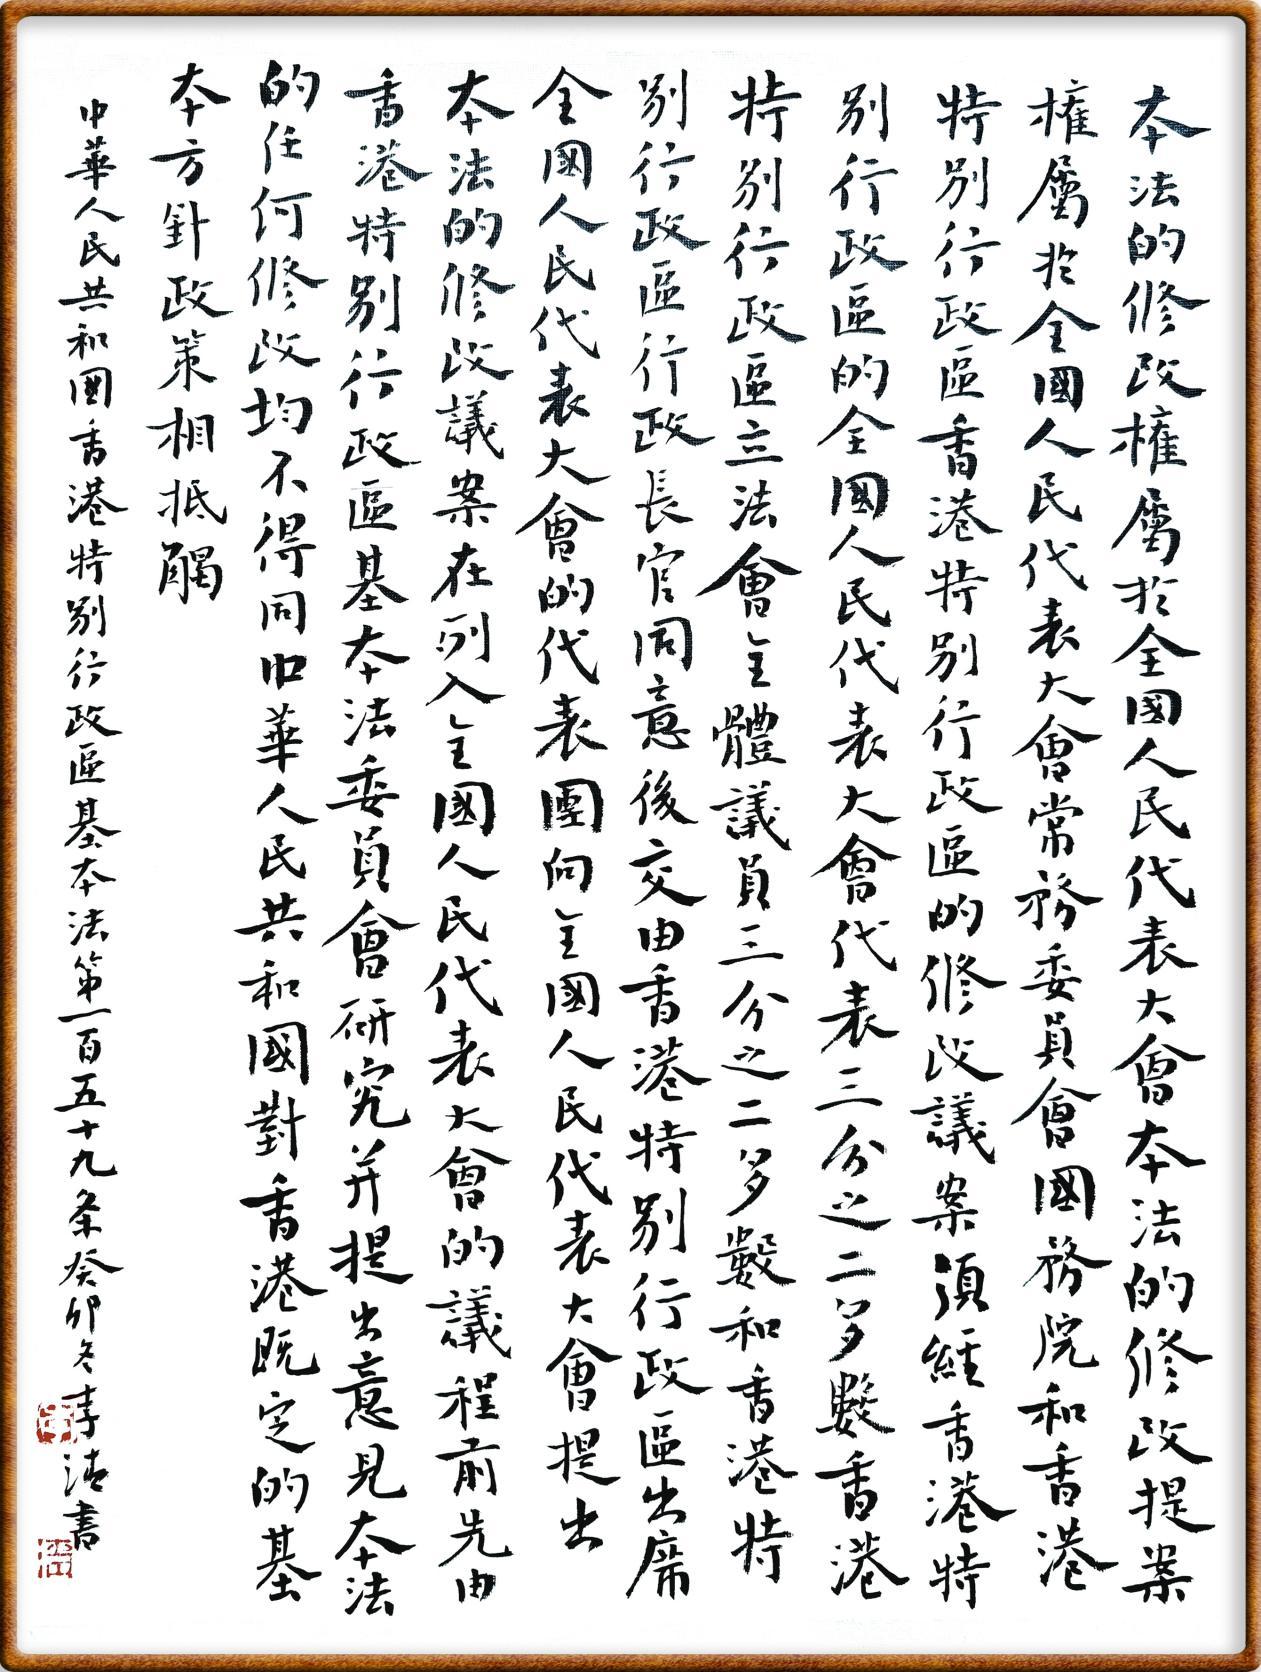 本法的修改權屬於全國人民代表大會本法的修改提案
權屬於全國人民代表大會常務委員會國務院和香港
特別行政區香港特別行政區的修改議案須經香港特
別行政區的全國人民代表大會代表三分之二多數香港
特別行政區立法會全體議員三分之二多數和香港特
別行政區行政長官同意後交由香港特別行政區出席
全國人民代表大會的代表團向全國人民代表大會提出
本法的修改議案在列入全國人民代表大會的議程前先由
香港特別行政區基本法委員會研究并提出意見本法
的任何修改均不得同中華人民共和國對香港既定的基
本方針政策相抵觸
中華人民共和國香港特別行政區基本法第一百五十九条癸卯冬李書